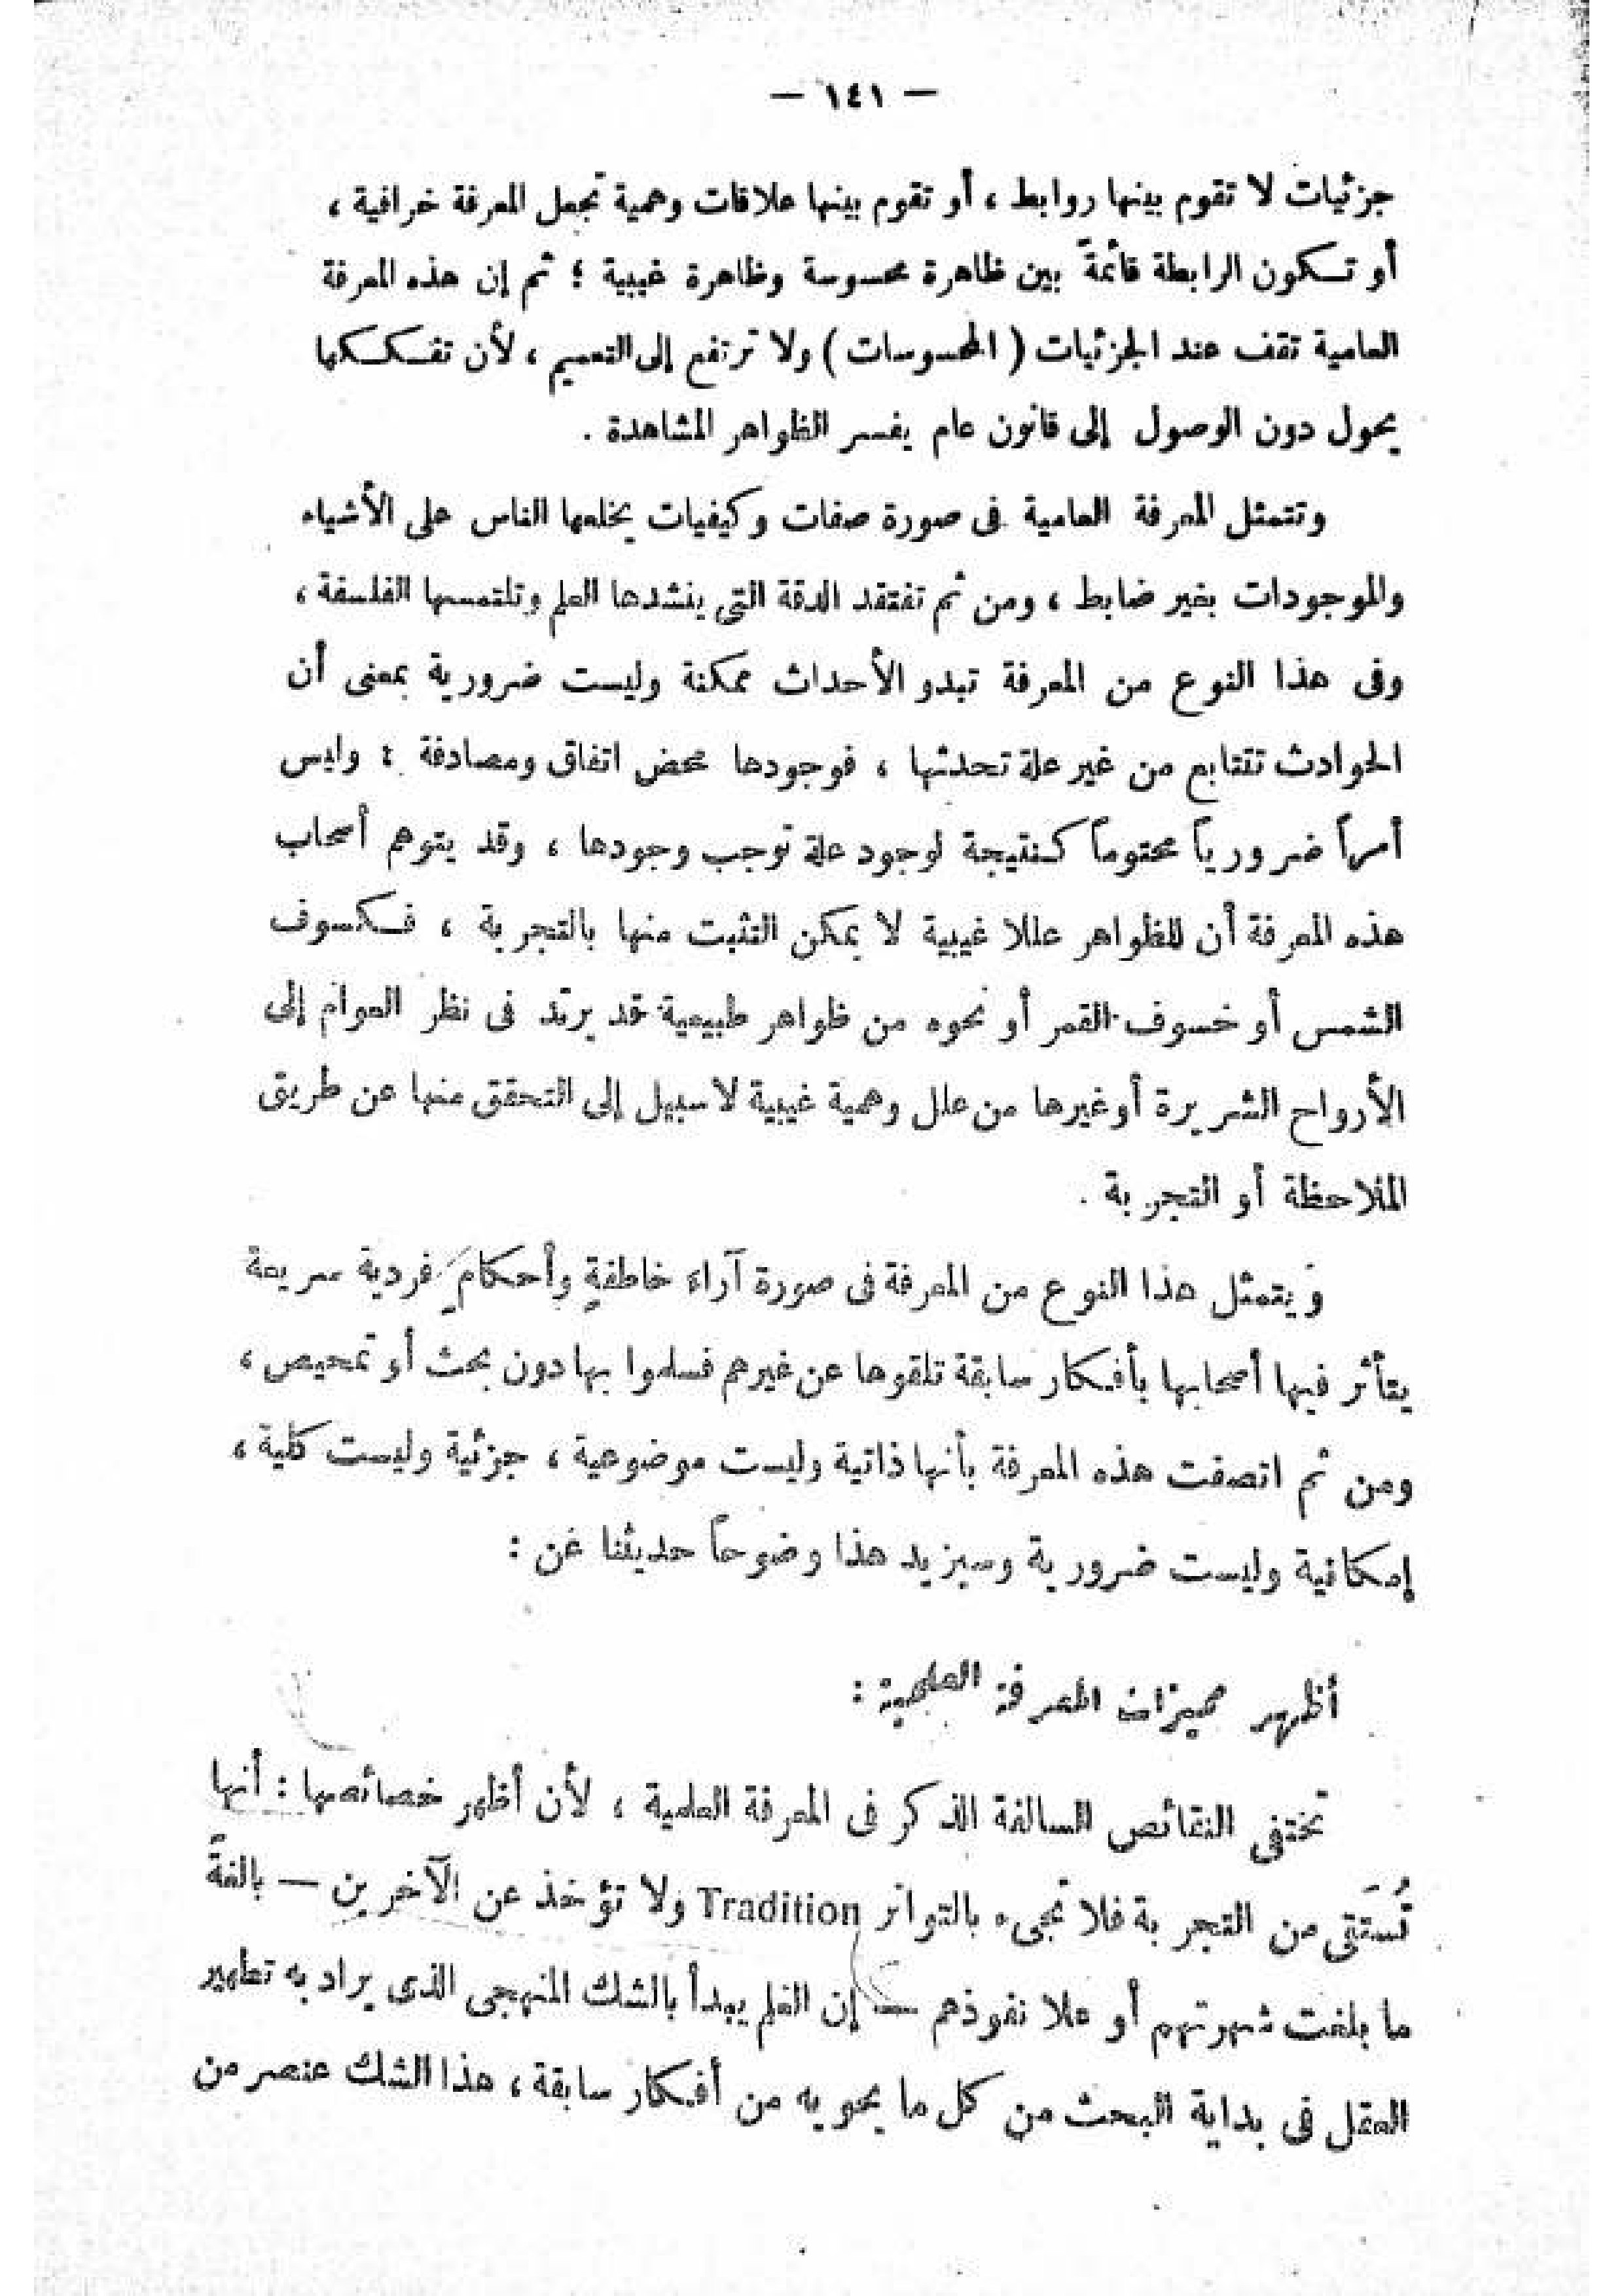 — ١٤١ —
جزئيات لا تقوم بينها روابط ، أو تقوم بينها علاقات وهمية تجعل المعرفة خرافية ،
أو تكون الرابطة قائمةً بين ظاهرة محسوسة وظاهرة غيبية ؛ ثم إن هذه المعرفة
العامية تقف عند الجزئيات ( المحسوسات ) ولا ترتفع إلى التعميم ، لأن تفككها
يحول دون الوصول إلى قانون عام يفسر الظواهر المشاهدة .
وتتمثل المعرفة العامية فى صورة صفات وكيفيات يخلعها الناس على الأشياء
والموجودات بغير ضابط ، ومن ثم تفتقد الدقة التى ينشدها العلم وتلتمسها الفلسفة ،
وفى هذا النوع من المعرفة تبدو الأحداث ممكنة وليست ضرورية بمعنى أن
الحوادث تتتابع من غير علة تحدثها ، فوجودها محض اتفاق ومصادفة ؛ وليس
أمراً ضرورياً محتوماً كنتيجة لوجود علة توجب وجودها ، وقد يتوهم أصحاب
هذه المعرفة أن للظواهر عللا غيبية لا يمكن التثبت منها بالتجربة ، فكسوف
الشمس أو خسوف القمر أو نحوه من ظواهر طبيعية قد يرتد فى نظر العوام إلى
الأرواح الشريرة أو غيرها من علل وهمية غيبية لا سبيل إلى التحقق منها عن طريق
الملاحظة أو التجربة .
ويتمثل هذا النوع من المعرفة فى صورة آراء خاطفةٍ وأحكامٍ فردية سريعة
يتأثر فيها أصحابها بأفكار سابقة تلقوها عن غيرهم فسلموا بها دون بحث أو تمحيص ،
ومن ثم اتصفت هذه المعرفة بأنها ذاتية وليست موضوعية ، جزئية وليست كلية ،
إمكانية وليست ضرورية وسيزيد هذا وضوحاً حديثنا عن :
أظهر مميزات المعرفة العلمية :
تختفى النقائص السالفة الذكر فى المعرفة العلمية ، لأن أظهر خصائصها : أنها
تُستَقى من التجربة فلا تجىء بالتواتر Tradition ولا تؤخذ عن الآخرين — بالغةً
ما بلغت شهرتهم أو علا نفوذهم — إن العلم يبدأ بالشك المنهجى الذى يراد به تطهير
العقل فى بداية البحث من كل ما يحويه من أفكار سابقة ، هذا الشك عنصر من